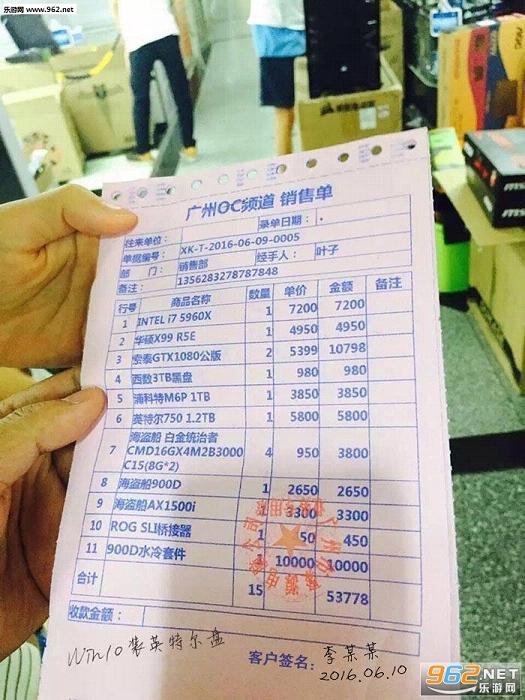 乐游网
www.962.net
广州OC频道 销售单
往来单位: 录单日期:
单据编号: XK-T-2016-06-09-0005
部 门: 销售部 经手人: 叶子
备注: 1356283278787848
行号 商品名称 数量 单价 金额 备注
1 INTEL i7 5960X 1 7200 7200
2 华硕X99 R5E 1 4950 4950
3 索泰GTX1080公版 2 5399 10798
4 西数3TB黑盘 1 980 980
5 浦科特M6P 1TB 1 3850 3850
6 英特尔750 1.2TB 1 5800 5800
7 海盗船 白金统治者
CMD16GX4M2B3000 4 950 3800
C15(8G*2)
8 海盗船900D 1 2650 2650
9 海盗船AX1500i 3300 3300
10 ROG SLI桥接器 450
11 900D水冷套件 1 10000 10000
合计 15 53778
收款金额:
Win10 装英特尔盘
客户签名: 李某某
2016.06.10
962.NET
乐游网